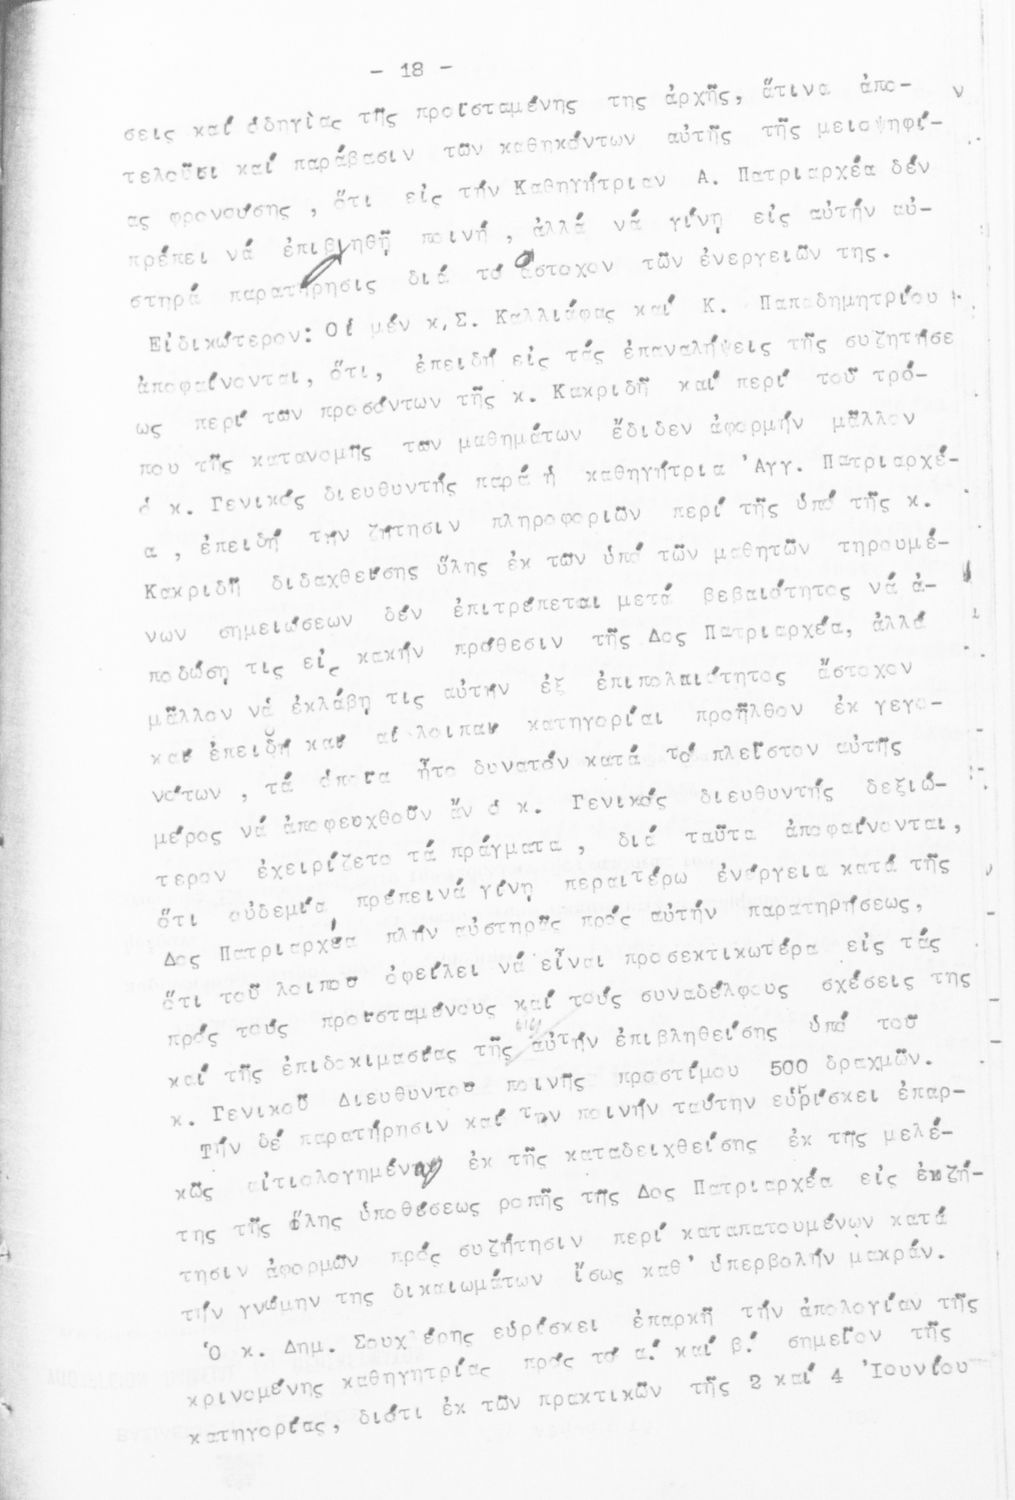 - 18 -
σεις καί ὁδηγίας τῆς προϊσταμένης της ἀρχῆς, ἅτινα ἀπο-
τελοῦσι καί παράβασιν τῶν καθηκόντων αὐτῆς τῆς μειοψηφί-
ας φρονούσης , ὅτι εἰς τήν Καθηγήτριαν Α. Πατριαρχέα δέν
πρέπει νά ἐπιβληθῇ ποινή , ἀλλά νά γίνῃ εἰς αὐτήν αὐ-
στηρά παρατήρησις διά τό ἄστοχον τῶν ἐνεργειῶν της.
Εἰδικώτερον: Οἱ μέν κ.Σ. Καλλιάφας καί Κ. Παπαδημητρίου
ἀποφαίνονται, ὅτι, ἐπειδή εἰς τάς ἐπαναλήψεις τῆς συζητήσε
ως περί τῶν προσόντων τῆς κ. Κακριδῆ καί περί τοῦ τρό-
που τῆς κατανομῆς τῶν μαθημάτων ἔδιδεν ἀφορμήν μᾶλλον
ὁ κ. Γενικός διευθυντής παρά ἡ καθηγήτρια 'Αγγ. Πατριαρχέ-
α , ἐπειδή τήν ζήτησιν πληροφοριῶν περί τῆς ὑπό τῆς κ.
Κακριδῆ διδαχθείσης ὕλης ἐκ τῶν ὑπό τῶν μαθητῶν τηρουμέ-
νων σημειώσεων δέν ἐπιτρέπεται μετά βεβαιότητος νά ἀ-
ποδώσῃ τις εἰς κακήν πρόθεσιν τῆς Δος Πατριαρχέα, ἀλλά
μᾶλλον νά ἐκλάβῃ τις αὐτήν ἐξ ἐπιπολαιότητος ἄστοχον
καί ἐπειδή καί αἱ λοιπαί κατηγορίαι προῆλθον ἐκ γεγο-
νότων , τά ὁποῖα ἦτο δυνατόν κατά τό πλεῖστον αὐτῆς
μέρος νά ἀποφευχθοῦν ἄν ὁ κ. Γενικός διευθυντής δεξιώ-
τερον ἐχειρίζετο τά πράγματα , διά ταῦτα ἀποφαίνονται,
ὅτι οὐδεμία πρέπεινά γίνῃ περαιτέρω ἐνέργεια κατά τῆς
Δος Πατριαρχέα πλήν αὐστηρᾶς πρός αὐτήν παρατηρήσεως,
ὅτι τοῦ λοιποῦ ὀφείλει νά εἶναι προσεκτικωτέρα εἰς τάς
πρός τούς προϊσταμένους καί τούς συναδέλφους σχέσεις της
καί τῆς ἐπιδοκιμασίας τῆς αὐτήν ἐπιβληθείσης ὑπό τοῦ
κ. Γενικοῦ Διευθυντοῦ ποινῆς προστίμου 500 δραχμῶν.
Τήν δέ παρατήρησιν καί τήν ποινήν ταύτην εὑρίσκει ἐπαρ-
κῶς αἰτιολογημένην ἐκ τῆς καταδειχθείσης ἐκ τῆς μελέ-
της τῆς ὅλης ὑποθέσεως ροπῆς τῆς Δος Πατριαρχέα εἰς ἐκζή-
τησιν ἀφορμῶν πρός συζήτησιν περί καταπατουμένων κατά
τήν γνώμην της δικαιωμάτων ἴσως καθ' ὑπερβολήν μακράν.
Ὁ κ. Δημ. Σουχλέρης εὑρίσκει ἐπαρκῆ τήν ἀπολογίαν τῆς
κρινομένης καθηγητρίας πρός τό α. καί β. σημεῖον τῆς
κατηγορίας, διότι ἐκ τῶν πρακτικῶν τῆς 2 καί 4 Ἰουνίου